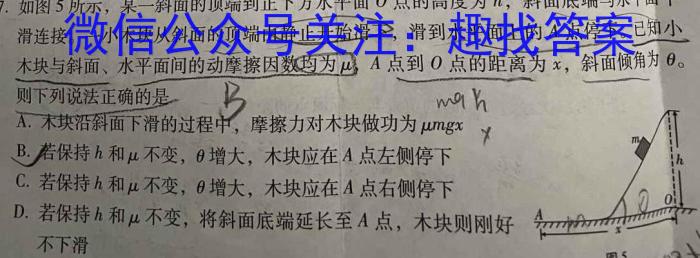 7. 如图5所示，某一斜面的顶端到正下方水平面O点的高度为h，斜面底端与水平面平
滑连接
微信公众号关注：趣找答案
滑到水平面上的A点停下。已知小
木块与斜面、水平面间的动摩擦因数均为μ，A点到O点的距离为x，斜面倾角为θ。
则下列说法正确的是
B
mgh
A. 木块沿斜面下滑的过程中，摩擦力对木块做功为μmgx
x
B. 若保持h和μ不变，θ增大，木块应在A点左侧停下
C. 若保持h和μ不变，θ增大，木块应在A点右侧停下
D. 若保持h和μ不变，将斜面底端延长至A点，木块则刚好
不下滑
m
h
A
x
O
图5